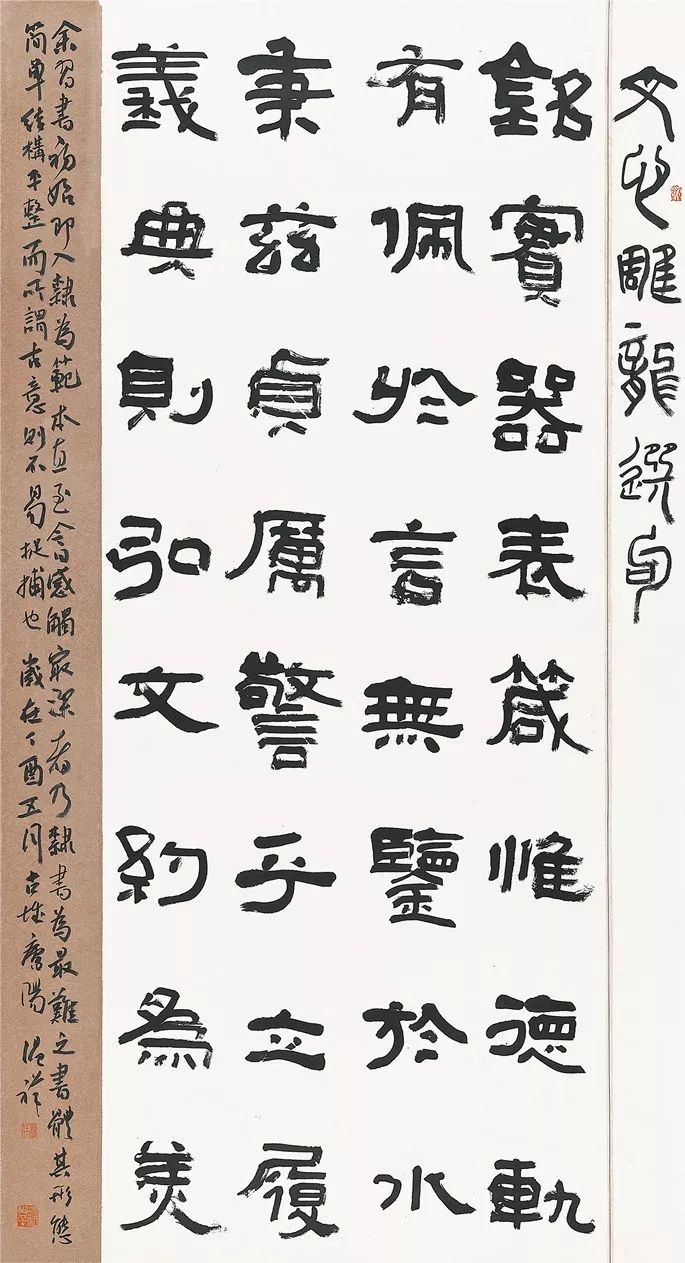 文心雕龍選句
銘實器表箴惟德軌
有佩於言無鑒於水
秉兹貞厲警乎立履
義典則弘文約為美
余習書初始即入隸為範本直至今感觸最深者乃隸書為最難之書體其形態
簡單結構平整而所謂古意則不易捉捕也歲在丁酉五月古城唐陽